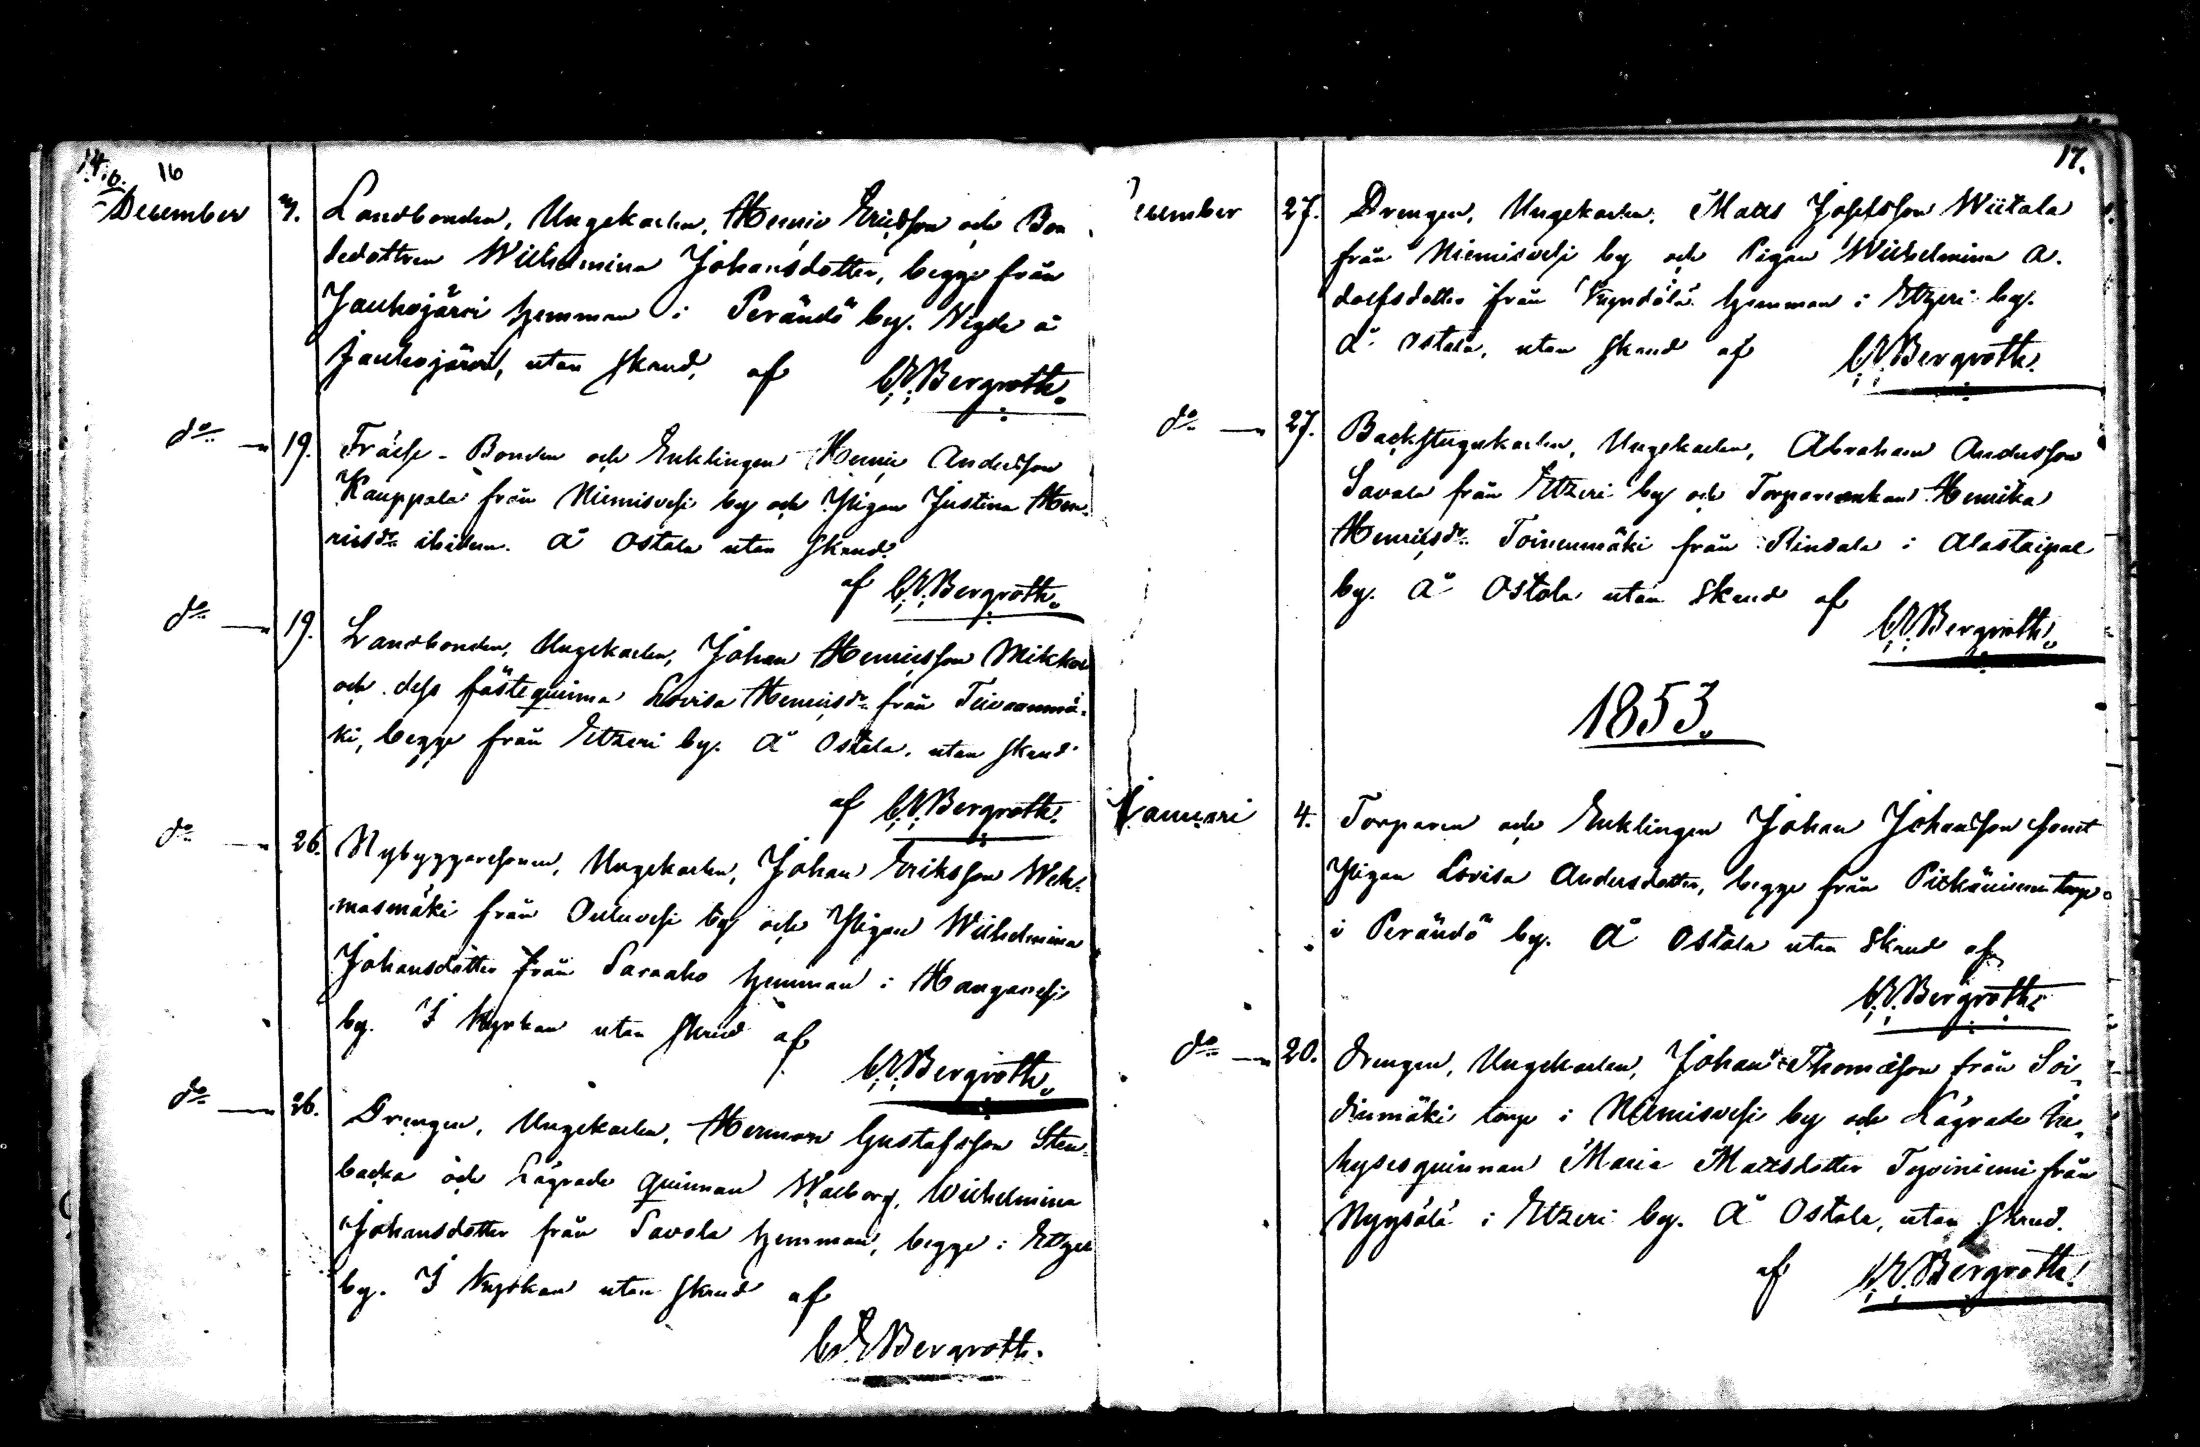 14. b. 16
December 7. Landbonden, Ungekarlen, Henric Ericsson och Bon
dedottren Wilhelmina Johansdotter, begge från
Jauhojärvi hemman i Perändö by. Vigde å
Jauhojärvi, utan skrud, af C.E. Bergroth.
do 19. Frälse-Bonden och Enklingen Henric Andersson
Kauppala från Niemisvesi by och Pigan Justina Hen-
ricsdr ibidem. Å Ostola utan skrud.
af C.E. Bergroth.
do 19. Landbonden, Ungekarlen, Johan Henricsson Mikkola
och dess fästequinna Lovisa Henricsdr från Teivaanmä-
ki, begge från Etzeri by. Å Ostola, utan skrud
af C.E. Bergroth.
do 26. Nybyggaresonen, Ungekarlen, Johan Eriksson Weh-
masmäki från Ouluvesi by och Pigan Wilhelmina
Johansdotter från Saraaho hemman i Hangavesi
by. I Kyrkan utan skrud af
C.E. Bergroth.
do 26. Drengen, Ungekarlen, Herman Gustafsson Sten-
backa och Lägrade quinnan Walborg Wilhelmina
Johansdotter från Savola hemman, begge i Etzeri
by. I Kyrkan utan skrud af
C.E. Bergroth.
17.
December 27. Drengen, Ungekarlen, Matts Josefsson Wiitala
från Niemisvesi by och Pigan Wilhelmina A-
dolfsdotter från hemman i Etzeri by.
Å Ostola, utan skrud af C.E. Bergroth.
do 27. Backstugukarlen, Ungekarlen, Abraham Andersson
Savola från Etzeri by och Torpareenkan Henrika
Henricsdr Toivenmäki från Rindala i Alastaipal
by. Å Ostola utan skrud af
C.E. Bergroth.
1853.
Januari 4. Torparen och Enklingen Johan Johansson samt
Pigan Lovisa Andersdotter, begge från Pitkäniemi torp
i Perändö by. Å Ostola utan skrud af
C.E. Bergroth.
do 20. Drengen, Ungekarlen, Johan Thomasson från Soi-
dinmäki torp i Niemisvesi by och Lägrade In-
hysesquinnan Maria Mattsdotter Topiniemi från
Nyysölä i Etzeri by. Å Ostola, utan skrud.
af C.E. Bergroth.